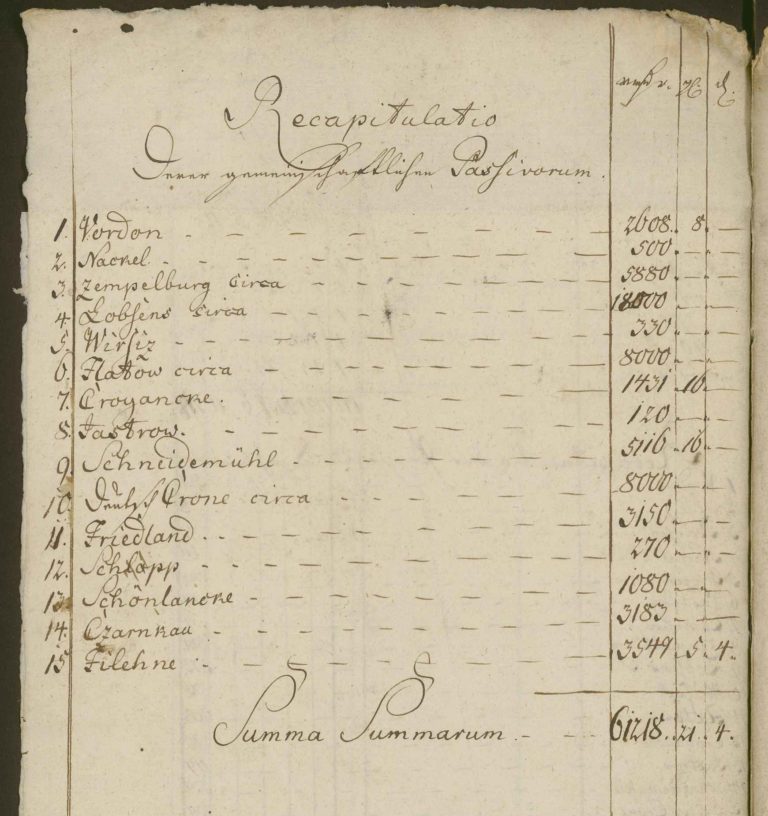 Recapitulatio
Derer gemeinschafftlichen Passivorum.
1. Vordon - - - 2608. 8. -
2. Nackel - - - 500. - -
3. Zempelburg circa - - - 5880. - -
4. Lobsens circa - - - 18000. - -
5. Wirsiz - - - 330. - -
6. Flatow circa - - - 8000. - -
7. Croyancke. - - - 1431. 16. -
8. Jastrow. - - - 120. - -
9. Schneidemühl - - - 5116. 16. -
10. Deutsch Crone circa - - - 8000. - -
11. Friedland - - - 3150. - -
12. Schlopp - - - 270. - -
13. Schönlancke - - - 1080. - -
14. Czarnkau - - - 3183. - -
15. Filehne - - - 3549. 5. 4.
Summa Summarum - - - 61218. 21. 4.